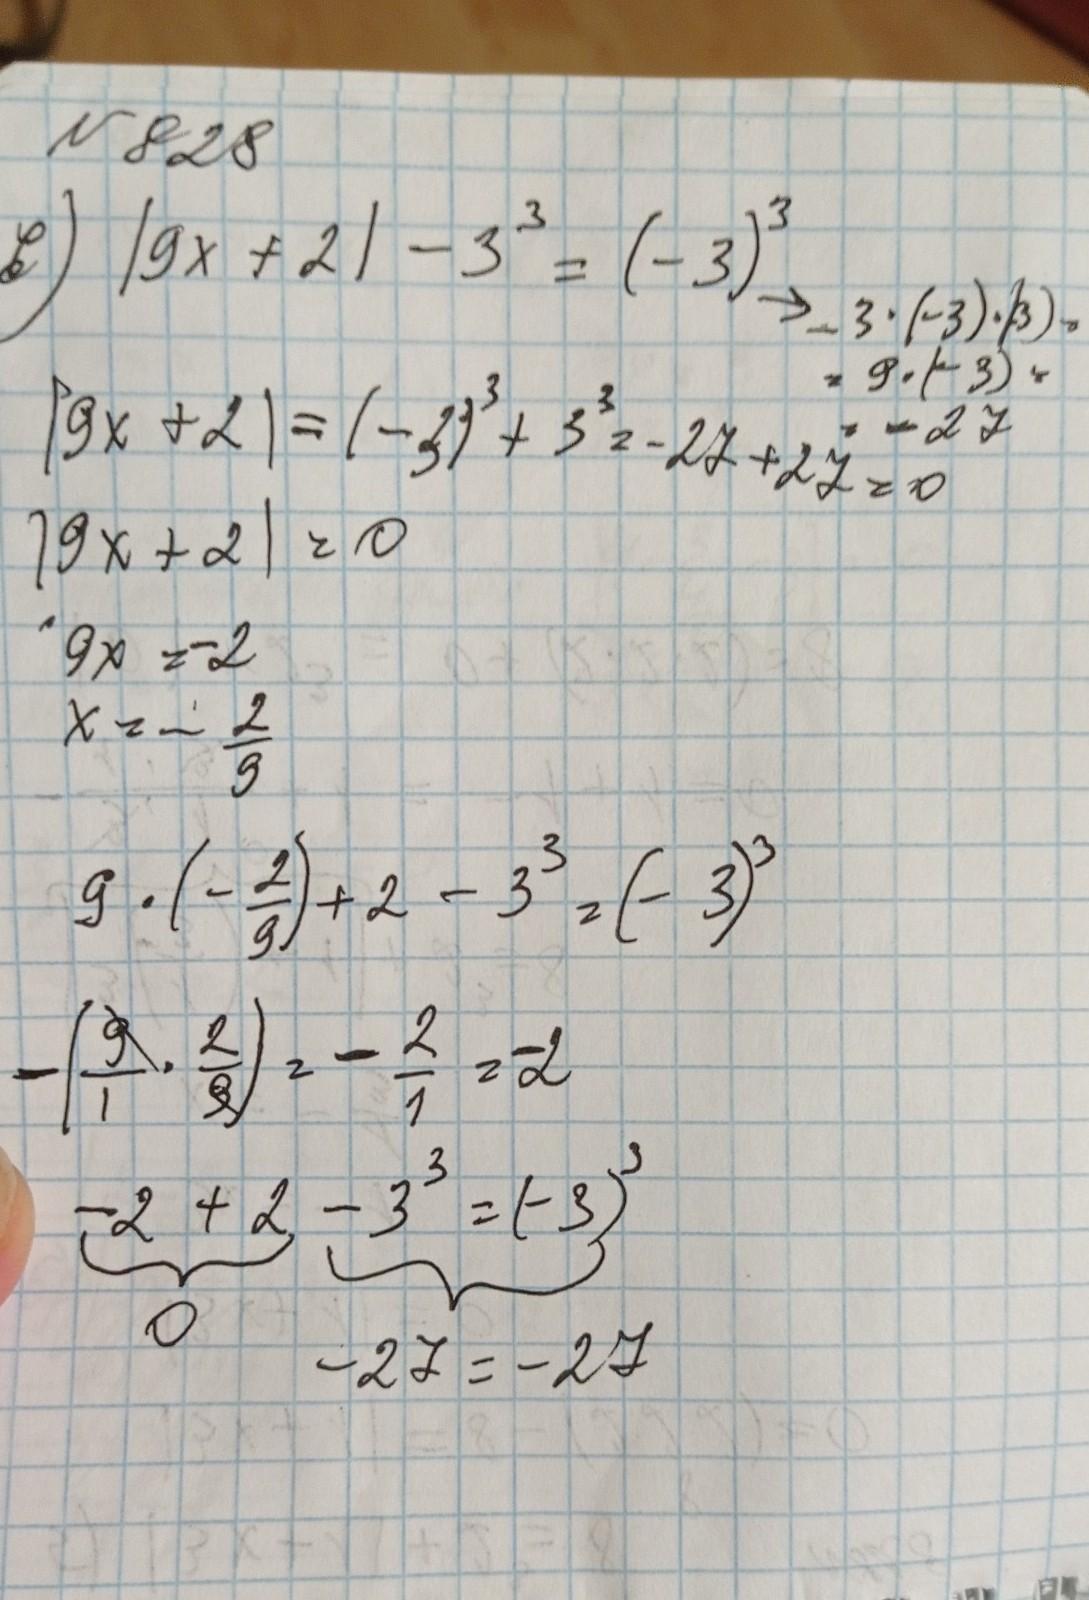 № 828
б) |9x + 2| - 3³ = (-3)³
→ - 3 · (-3) · (3) =
= 9 · (-3) =
= - 27
|9x + 2| = (-3)³ + 3³ = -27 + 27 = 0
|9x + 2| = 0
9x = -2
x = - 2/9
9 · (- 2/9) + 2 - 3³ = (- 3)³
- (9/1 · 2/9) = - 2/1 = -2
-2 + 2 - 3³ = (-3)³
0
-27 = -27